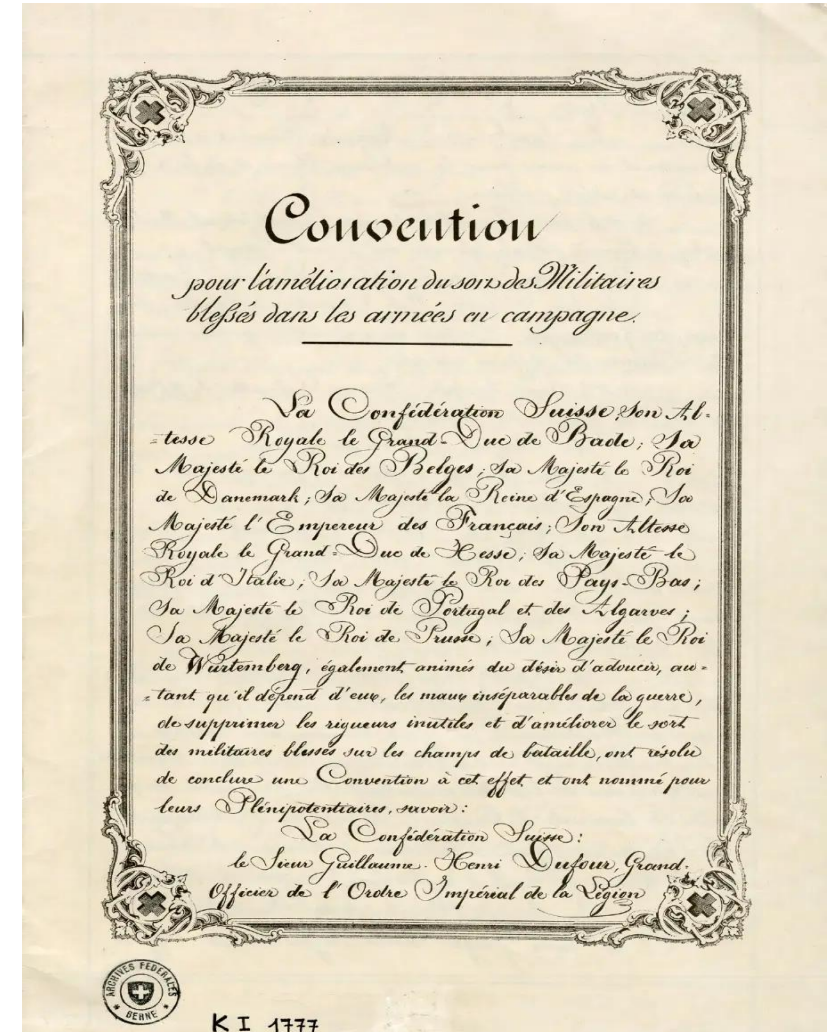 Convention
pour l'amélioration du sort des Militaires
blessés dans les armées en campagne.
La Confédération Suisse; Son Al-
-tesse Royale le Grand-Duc de Bade; Sa
Majesté le Roi des Belges; Sa Majesté le Roi
de Danemark; Sa Majesté la Reine d'Espagne; Sa
Majesté l'Empereur des Français; Son Altesse
Royale le Grand-Duc de Hesse; Sa Majesté le
Roi d'Italie; Sa Majesté le Roi des Pays-Bas;
Sa Majesté le Roi de Portugal et des Algarves;
Sa Majesté le Roi de Prusse; Sa Majesté le Roi
de Würtemberg, également animés du désir d'adoucir, au-
-tant qu'il dépend d'eux, les maux inséparables de la guerre,
de supprimer les rigueurs inutiles et d'améliorer le sort
des militaires blessés sur les champs de bataille, ont résolu
de conclure une Convention à cet effet et ont nommé pour
leurs Plénipotentiaires, savoir:
La Confédération Suisse:
le Sieur Guillaume-Henri Dufour, Grand-
Officier de l'Ordre Impérial de la Légion
ARCHIVES FEDERALES
BERNE
K I 1777